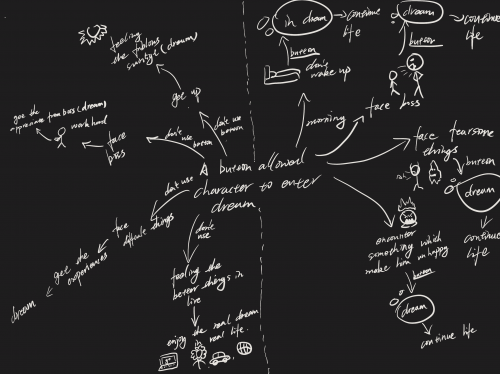 A button allowed
character to enter
dream
don't use
button
get up
feeling
the fabulous
sunlight (dream)
don't
use
button
face
boss
work hard
get the
appreciate from boss (dream)
don't use
face
difficult things
get the
experiences
dream
don't
use
feeling the
better things in
live
enjoy the real dream
real life.
morning
don't
wake up
button
in dream
continue
life
face boss
button
dream
continue
life
face fearsome
things
button
dream
continue
life
encounter
something which
make him unhappy
button
dream
continue life